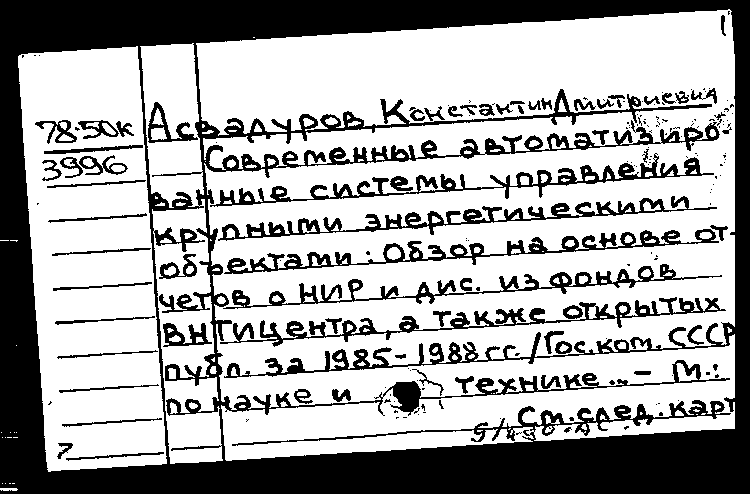 78-50к
3996
Асвадуров, Константин Дмитриевич
Современные автоматизиро-
ванные системы управления
крупными энергетическими
объектами : Обзор на основе от-
четов о НИР и дис. из фондов
ВНТИЦентра, а также открытых
публ. за 1985-1988 гг. / Гос. ком. СССР
по науке и технике... - М.:
См. след. карт